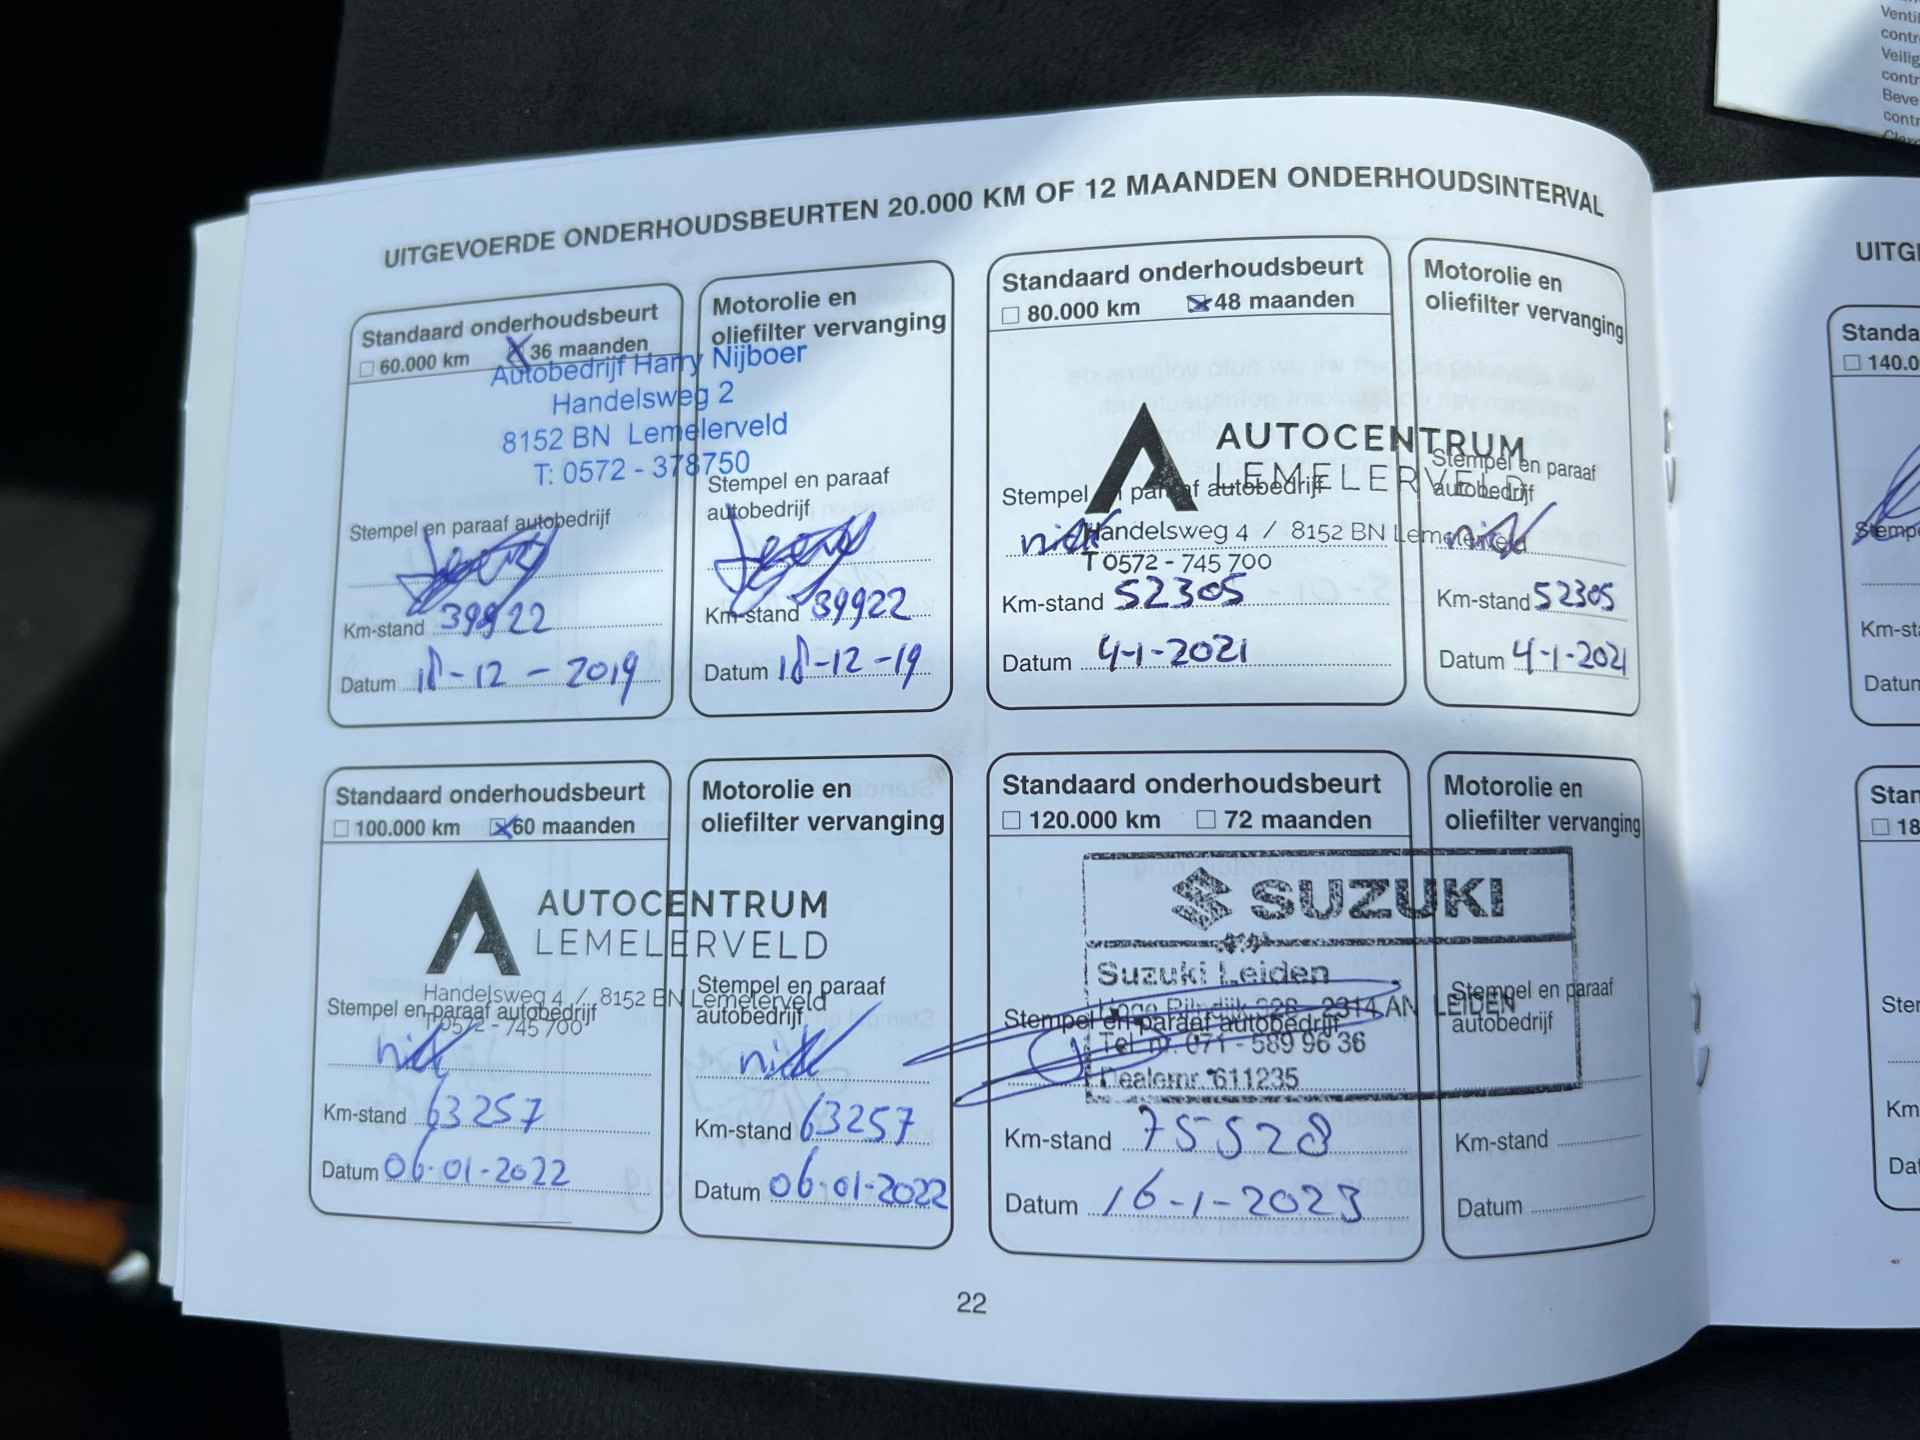 UITGEVOERDE ONDERHOUDSBEURTEN 20.000 KM OF 12 MAANDEN ONDERHOUDSINTERVAL
Standaard onderhoudsbeurt
60.000 km 36 maanden
Autobedrijf Harry Nijboer
Handelsweg 2
8152 BN Lemelerveld
T: 0572 - 378750
Stempel en paraaf autobedrijf
Km-stand 39922
Datum 18-12-2019
Motorolie en
oliefilter vervanging
Stempel en paraaf
autobedrijf
Km-stand 39922
Datum 18-12-19
Standaard onderhoudsbeurt
80.000 km 48 maanden
AUTOCENTRUM
LEMELERVELD
Stempel en paraaf autobedrijf
Handelsweg 4 / 8152 BN Lemelerveld
nick
T 0572 - 745 700
Km-stand 52305
Datum 4-1-2021
Motorolie en
oliefilter vervanging
Stempel en paraaf
autobedrijf
nick
Km-stand 52305
Datum 4-1-2021
Standaard onderhoudsbeurt
100.000 km 60 maanden
AUTOCENTRUM
LEMELERVELD
Handelsweg 4 / 8152 BN Lemelerveld
Stempel en paraaf autobedrijf
T 0572 - 745 700
nick
Km-stand 63257
Datum 06-01-2022
Motorolie en
oliefilter vervanging
Stempel en paraaf
autobedrijf
nick
Km-stand 63257
Datum 06-01-2022
Standaard onderhoudsbeurt
120.000 km 72 maanden
SUZUKI
Suzuki Leiden
2314 AN LEIDEN
Stempel en paraaf autobedrijf
Tel. nr. 071 - 589 96 36
Dealernr. 611235
Km-stand 75528
Datum 16-1-2023
Motorolie en
oliefilter vervanging
Stempel en paraaf
autobedrijf
Km-stand
Datum
22
UITG
Standa
140.0
Stemp
Km-sta
Datun
Stan
18
Ster
Km
Dat
Venti
contr
Veilig
contr
Beve
contr